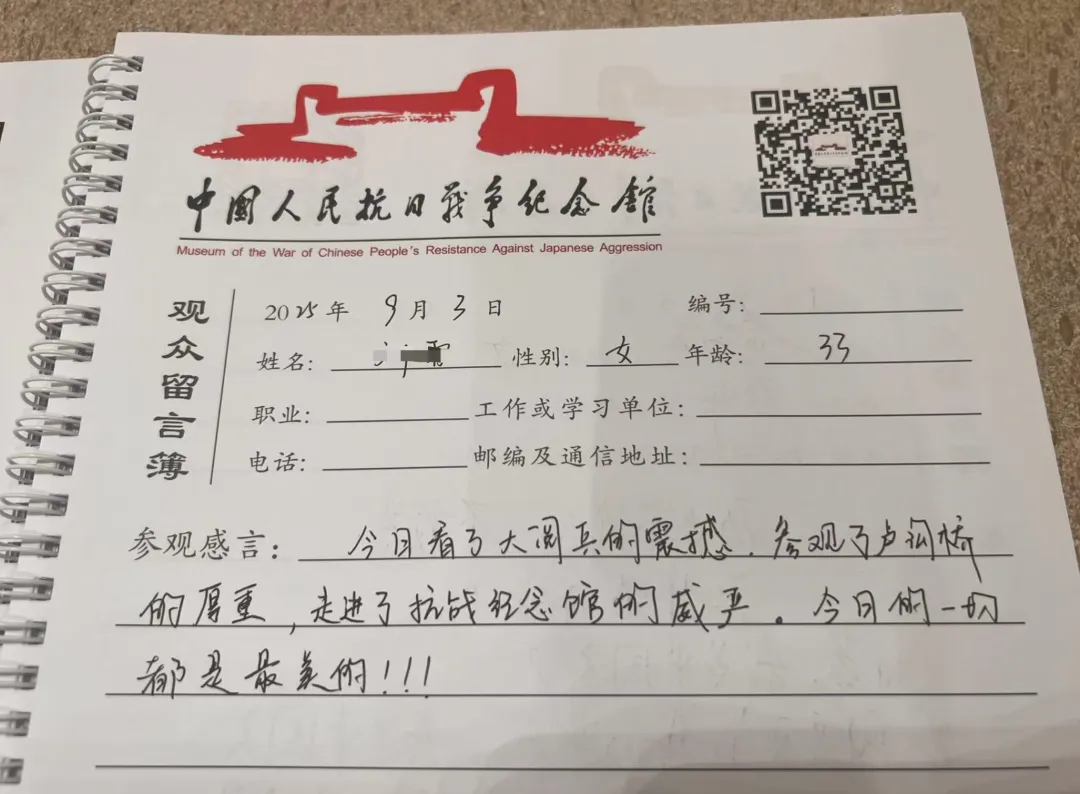 中國人民抗日戰爭纪念館
Museum of the War of Chinese People's Resistance Against Japanese Aggression
观众留言簿
2025年 9月 3日 编号:
姓名: 性别: 女 年龄: 33
职业: 工作或学习单位:
电话: 邮编及通信地址:
参观感言: 今日看了大阅兵的震撼.参观了卢沟桥
的厚重,走进了抗战纪念馆的威严。今日的一切
都是最美的!!!